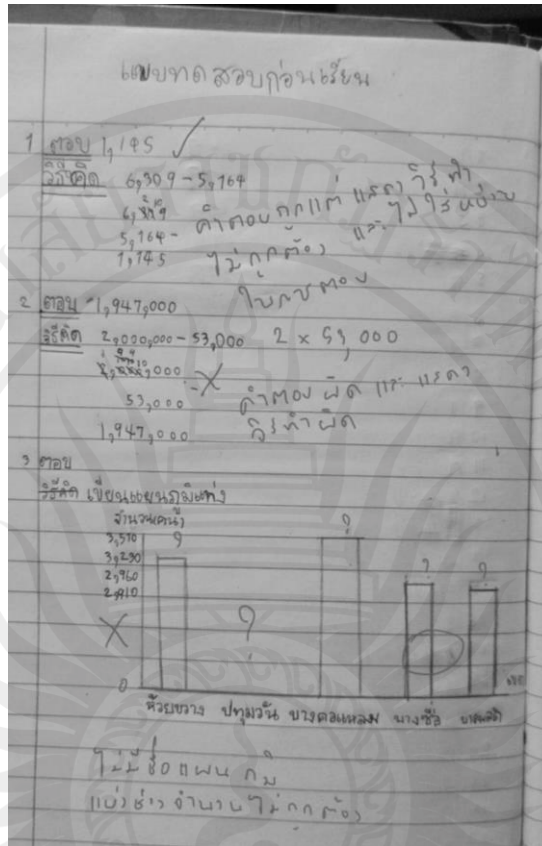 แบบทดสอบก่อนเรียน
1 ตอบ 1,145 ✓
วิธีคิด 6,309 - 5,164
6,309
5,164 -
1,145
คำตอบถูกแต่ แสดงวิธีทำ
ไม่ถูกต้อง และไม่ใส่หน่วย
ในการตอบ
2 ตอบ 1,947,000
วิธีคิด 2,000,000 - 53,000 2 × 53,000
2,000,000
53,000 -
1,947,000
คำตอบผิด และ แสดง
วิธีทำผิด
3 ตอบ
วิธีคิด เขียนแผนภูมิแท่ง
3,570
3,290
2,960
2,910
0
? ? ? ? ?
ห้วยขวาง ปทุมวัน บางคอแหลม บางซื่อ บางพลัด
ไม่มีชื่อแผนภูมิ
แบ่งช่วงจำนวนไม่ถูกต้อง